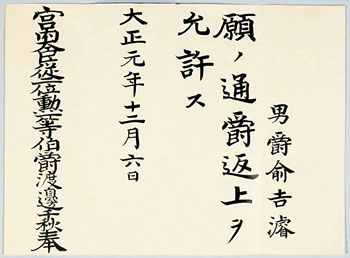 男爵兪吉濬
願ノ通爵返上ヲ
允許ス
大正元年十二月六日
宮内大臣従二位勲一等伯爵渡邊千秋奉